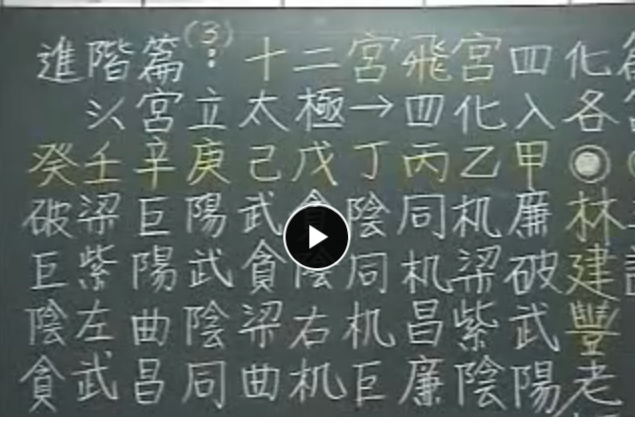 進階篇(3): 十二宮飛宮四化
以宮立太極→四化入各
癸壬辛庚己戊丁丙乙甲◎
破梁巨陽武貪陰同机廉林
巨紫陽武貪陰同机梁破建
陰左曲陰梁右机昌紫武豐
貪武昌同曲机巨廉陰陽老